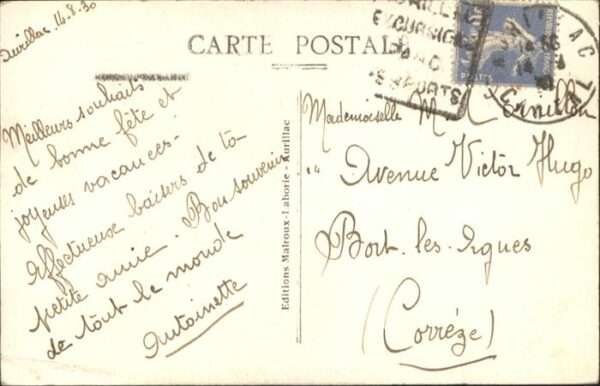 Aurillac, 14.8.30
CARTE POSTALE
EXCURSIONS
SPORTS
POSTES
Meilleurs souhaits
de bonne fête et
joyeuses vacances.
Affectueux baisers de ta
petite amie. Bon souvenir
de tout le monde
Antoinette
Editions Malroux-Laborie-Aurillac
Mademoiselle M.
14 Avenue Victor Hugo
Bort-les-Orgues
(Corrèze)